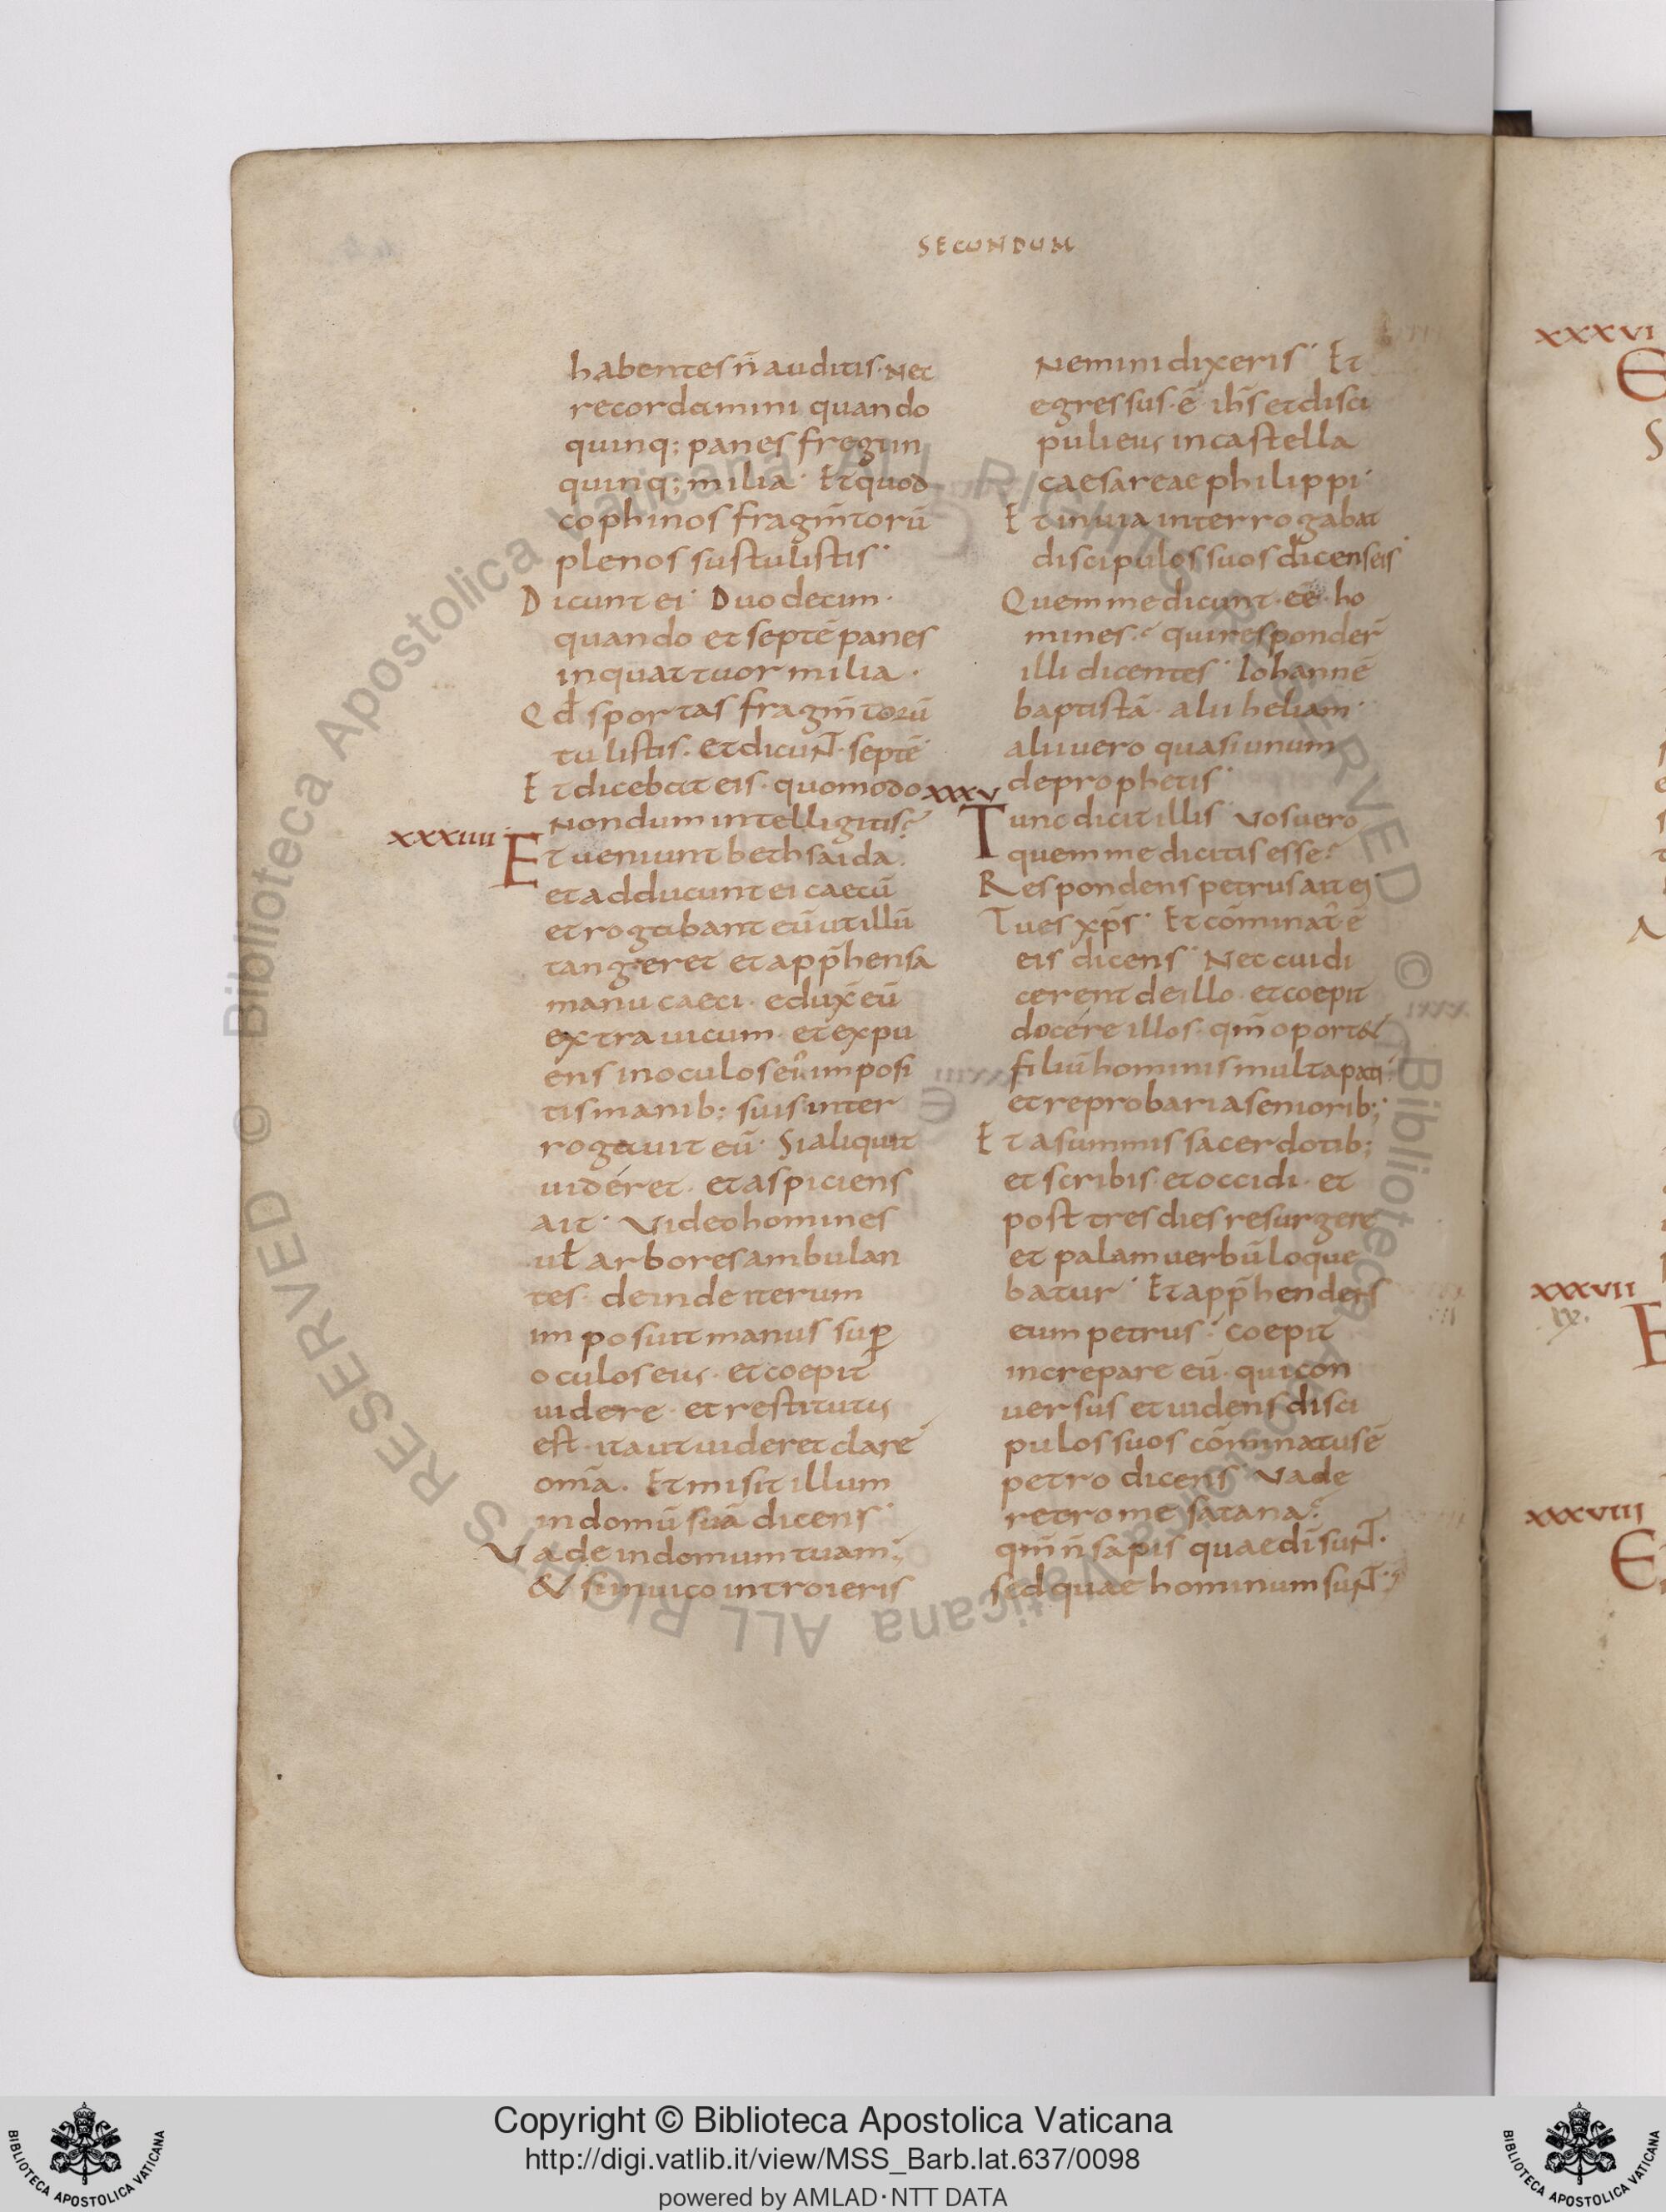 SECUNDUM
habentes n̄ auditis · Nec
recordamini quando
quinq; panes fregi in
quinq; milia · Et quod
cophinos fragm̄torū
plenos sustulistis ·
Dicunt ei · Duodecim ·
quando et septē panes
in quattuor milia ·
Qd̄ sportas fragm̄torū
tulistis · et dicunt · septē
Et dicebat eis · quomodo
Nondum intelligitis?
xxxiiii
Et ueniunt bethsaida ·
et adducunt ei caecū
et rogabant eū ut illū
tangeret et app̄hensa
manu caeci · edux̄ eū
extra uicum · et expu
ens in oculos ei' imposi
tis manib; suis inter
rogauit eū · Si aliquit
uidéret · et aspiciens
ait · Video homines
uł arbores ambulan
tes · deinde iterum
imposuit manus suꝑ
oculos eius · et coepit
uidere · et restitutus
est · ita ut uideret clare
om̄ia · Et misit illum
in domū suā dicens ·
Vade in domum tuam ;
& si in uico introieris
Nemini dixeris · Et
egressus · ē · ih̄s et disci
puli eius in castella
caesareae philippi ·
Et in uia interrogabat
discipulos suos dicens eis ·
Quem me dicunt · eē · ho
mines? qui responder̄
illi dicentes · Iohannē
baptistā · alii heliam ·
alii uero quasi unum
de prophetis ·
xxxv
Tunc dicit illis · Vos uero
quem me dicitis esse?
Respondens petrus ait ei ·
Tu es xp̄s · Et cōminat' ē
eis dicens · Nec cui di
cerent de illo · et coepit
docére illos · qm̄ oportet
filiū hominis multa pati ·
et reprobari a seniorib; ·
Et a summis sacerdotib;
et scribis · et occidi · et
post tres dies resurgere
et palam uerbū loque
batur · Et app̄hendens
eum petrus · coepit
increpare eū · qui con
uersus et uidens disci
pulos suos cōminatus ē
petro dicens · Vade
retro me satana ·
qm̄ n̄ sapis quae di sunt ·
sed quae hominum sunt ·
xxxvi
xxxvii
ix.
xxxviii
Copyright © Biblioteca Apostolica Vaticana
http://digi.vatlib.it/view/MSS_Barb.lat.637/0098
powered by AMLAD·NTT DATA
BIBLIOTECA APOSTOLICA VATICANA
BIBLIOTECA APOSTOLICA VATICANA
© Biblioteca Apostolica Vaticana ALL RIGHTS RESERVED
© Biblioteca Apostolica Vaticana ALL RIGHTS RESERVED